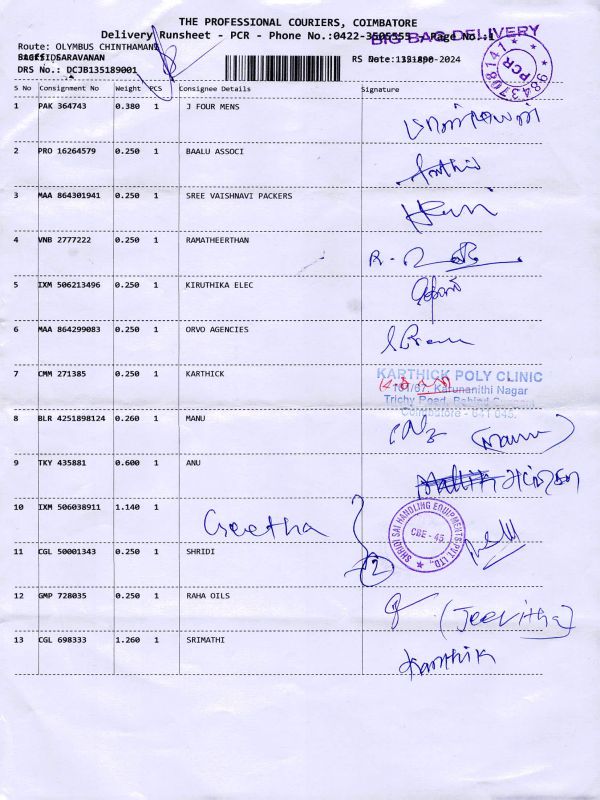 THE PROFESSIONAL COURIERS, COIMBATORE
Delivery Runsheet - PCR - Phone No.:0422-3505355 - Page No.:1
BIG BAG DELIVERY
Route: OLYMBUS CHINTHAMANI
SARAVANAN
DRS No.: DCJB135189001
2024
9843708141
PCR
S No Consignment No Weight PCS Consignee Details Signature
1 PAK 364743 0.380 1 J FOUR MENS
2 PRO 16264579 0.250 1 BAALU ASSOCI
3 MAA 864301941 0.250 1 SREE VAISHNAVI PACKERS
4 VNB 2777222 0.250 1 RAMATHEERTHAN
5 IXM 506213496 0.250 1 KIRUTHIKA ELEC
6 MAA 864299083 0.250 1 ORVO AGENCIES
7 CMM 271385 0.250 1 KARTHICK
KARTHICK POLY CLINIC
101/87, Karunanithi Nagar
Trichy Road,
Coimbatore - 641 045.
8 BLR 4251898124 0.260 1 MANU
9 TKY 435881 0.600 1 ANU
10 IXM 506038911 1.140 1 Geetha
SHRIDI SAI HANDLING EQUIPMENTS PVT LTD.,
CBE - 45
11 CGL 50001343 0.250 1 SHRIDI
2
12 GMP 728035 0.250 1 RAHA OILS (Jeevitha)
13 CGL 698333 1.260 1 SRIMATHI Karthik